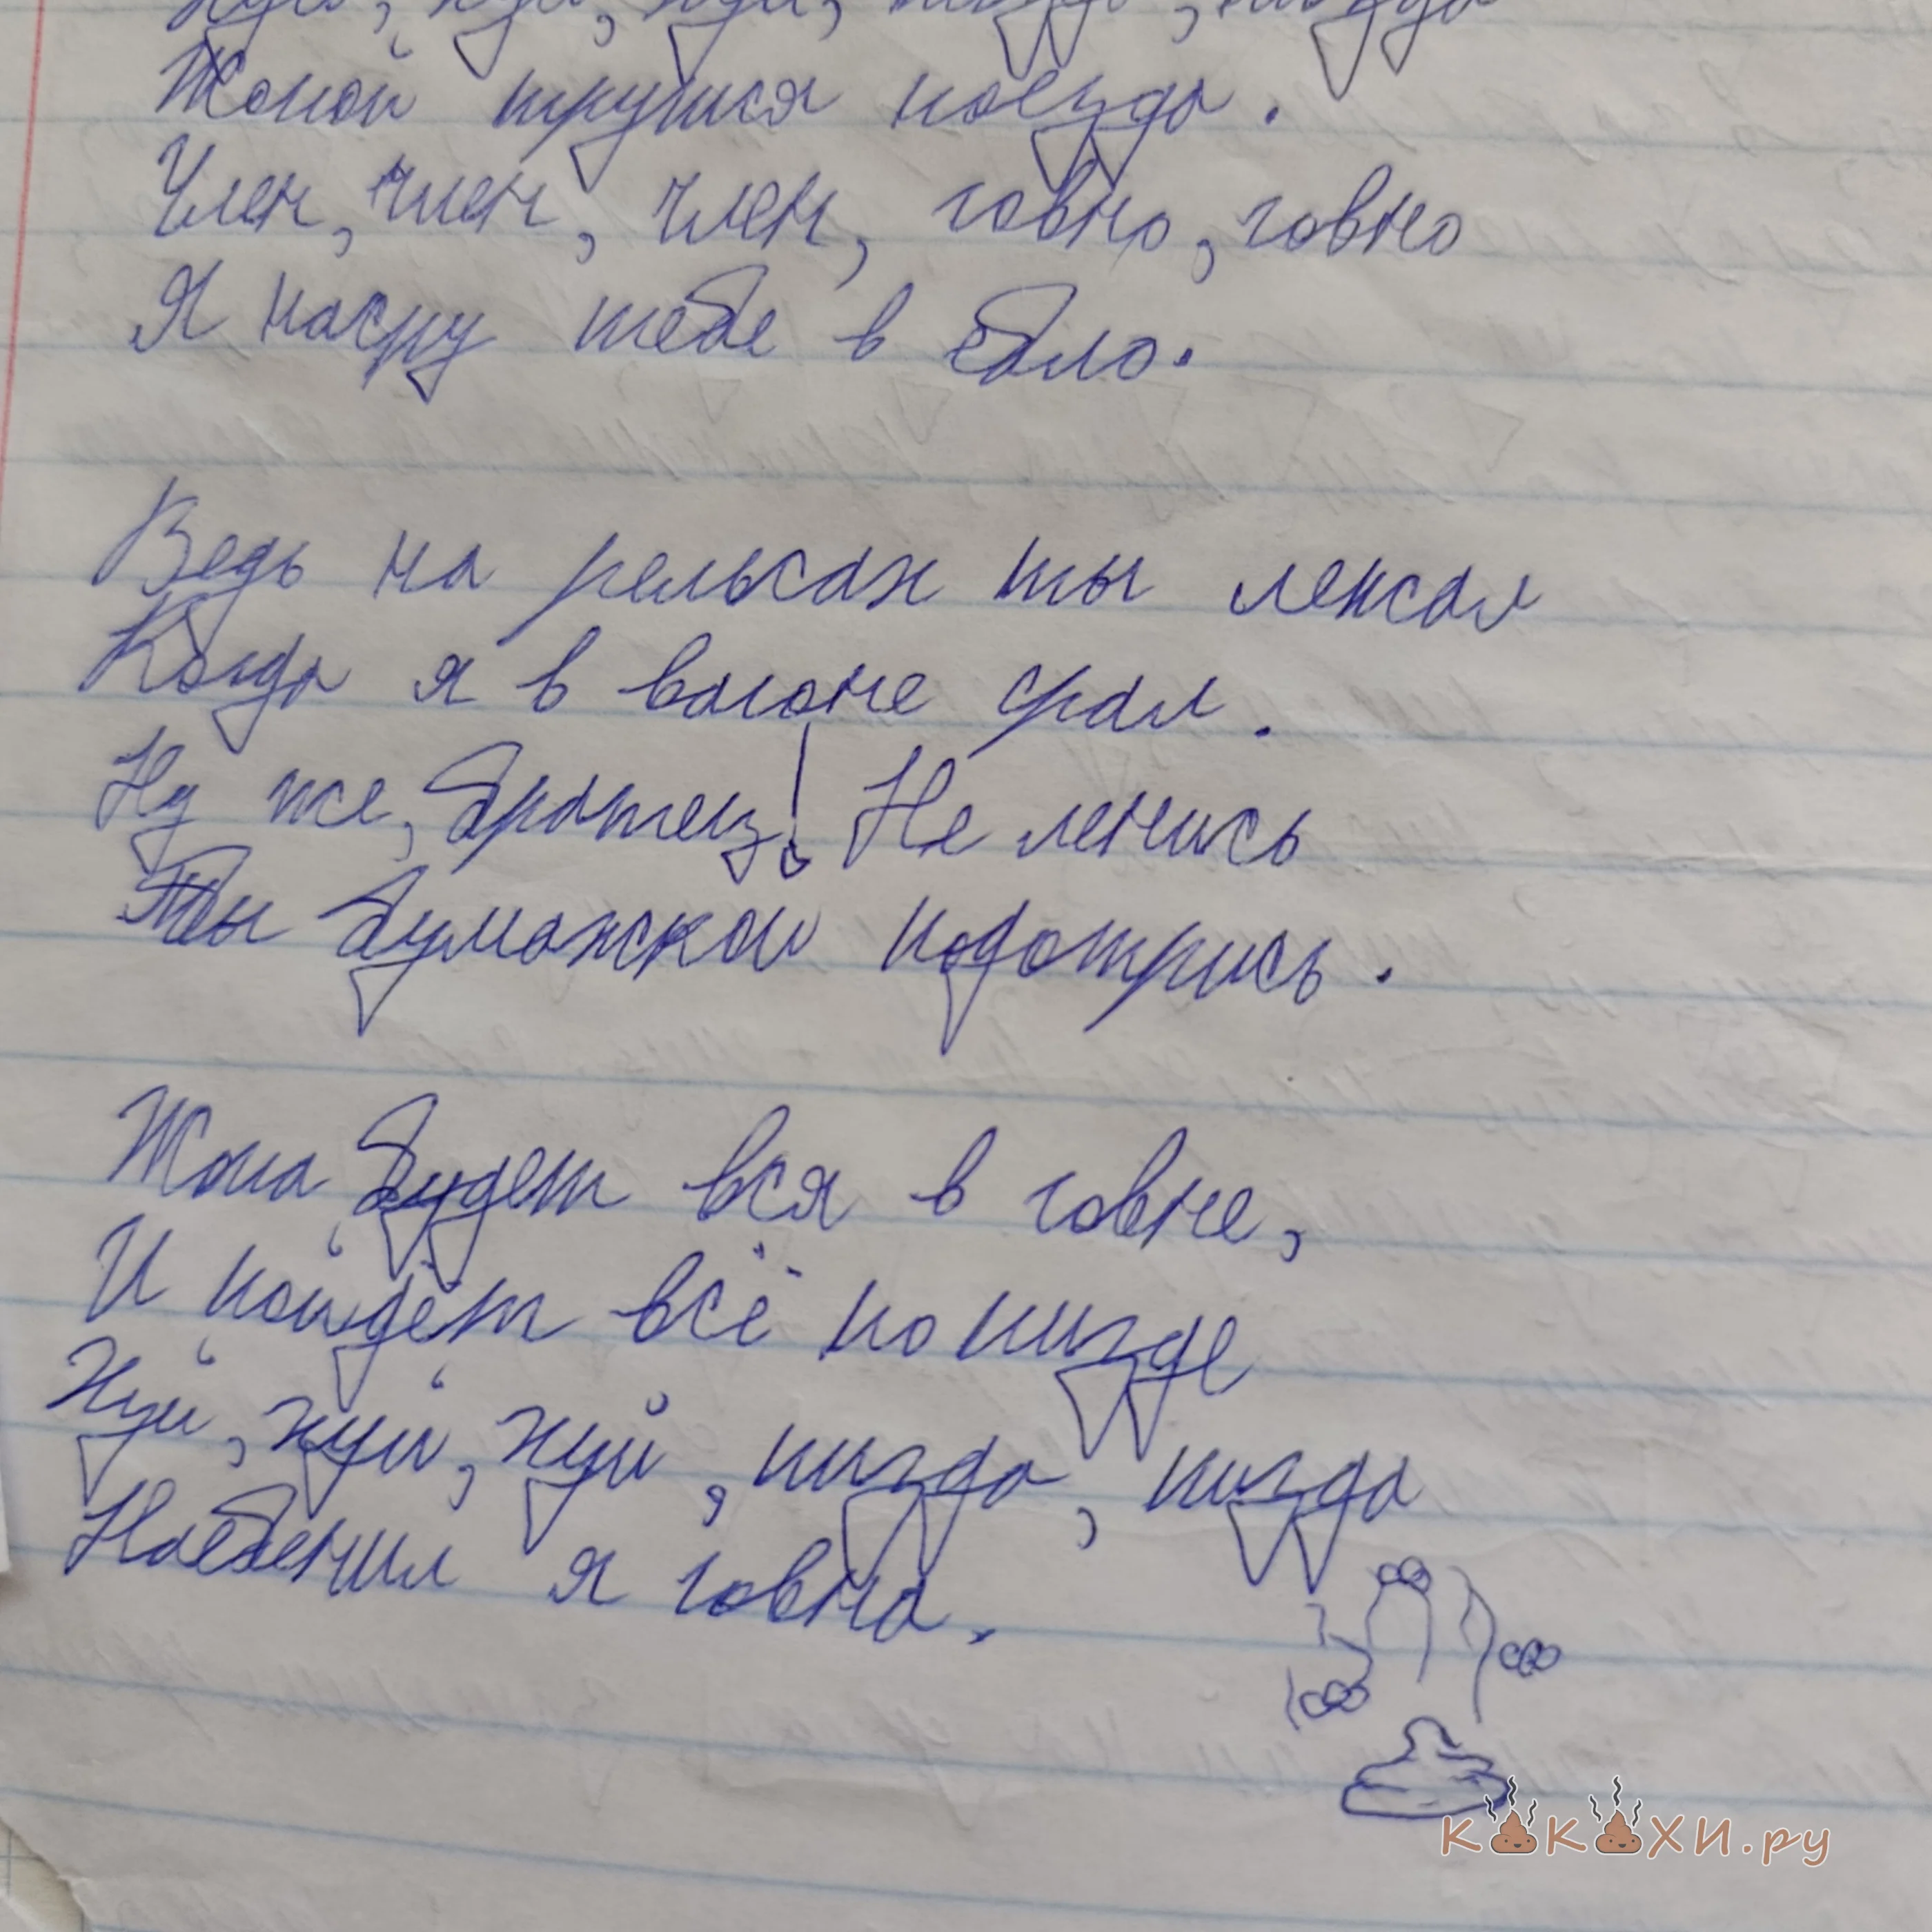 Хуй, хуй, хуй, пизда, пизда
Жопой трутся поезда.
Член, член, член, говно, говно
Я насру тебе в ебло.
Ведь на рельсах ты лежал
Когда я в вагоне срал.
Ну же, братец! Не ленись
Ты бумажкой подотрись.
Жопа будет вся в говне,
И пойдёт всё по пизде
Хуй, хуй, хуй, пизда, пизда
Наебенил я говна.
КАКАХИ.РУ